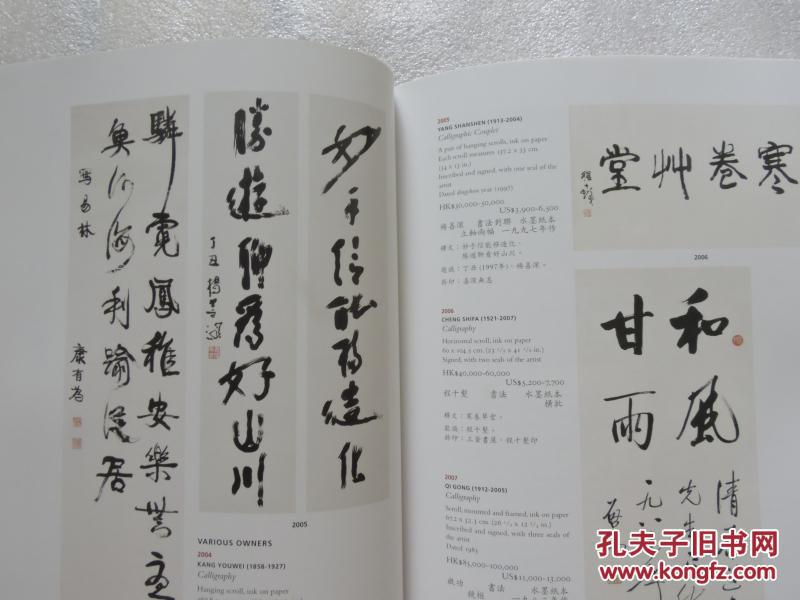 驎鳳雅安樂無憂
魚河海利踰徙居
寫易林
康有為
妙手信能移造化
勝遊聊看好山川
丁丑楊善深
2005
VARIOUS OWNERS
2004
KANG YOUWEI (1858-1927)
Calligraphy
Hanging scroll, ink on paper
2005
YANG SHANSHEN (1913-2004)
Calligraphic Couplet
A pair of hanging scrolls, ink on paper
Each scroll measures 137.2 x 33 cm.
(54 x 13 in.)
Inscribed and signed, with one seal of the
artist
Dated dingchou year (1997)
HK$30,000-50,000
US$3,900-6,500
楊善深 書法對聯 水墨紙本
立軸兩幅 一九九七年作
釋文：妙手信能移造化，
勝遊聊看好山川。
題識：丁丑(1997年)，楊善深。
鈐印：善深無恙
寒卷艸堂
程十髮
2006
2006
CHENG SHIFA (1921-2007)
Calligraphy
Horizontal scroll, ink on paper
Signed, with two seals of the artist
HK$40,000-60,000
US$5,200-7,700
程十髮 書法 水墨紙本
橫批
釋文：寒卷草堂。
款識：程十髮。
鈐印：三釜書屋、程十髮印
2007
QI GONG (1912-2005)
Calligraphy
Scroll, mounted and framed, ink on paper
67.2 x 32.3 cm (26 1/2 x 12 3/4 in.)
Inscribed and signed, with three seals of
the artist
Dated 1983
HK$85,000-100,000
US$11,000-13,000
啟功 書法 水墨紙本
鏡框
和風
甘雨
孔夫子旧书网
www.kongfz.com